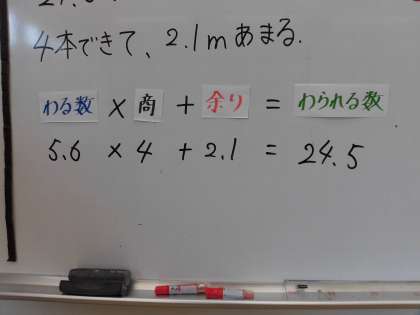 4本できて、2.1mあまる.
わる数 × 商 + 余り = わられる数
5.6 × 4 + 2.1 = 24.5